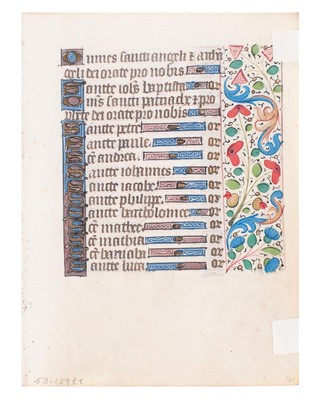 Omnes sancti angeli et archan
geli dei orate pro nobis
Sancte iohes baptista or
Omes sancti patriarche et pro
phete dei orate pro nobis
Sancte petre or
Sancte paule or
Sce andrea or
Sancte iohannes or
Sancte iacobe or
Sancte philippe or
Sancte bartholomee or
Sce mathee or
Sce mathia or
Sce barnaba or
Sancte luca or
53.129